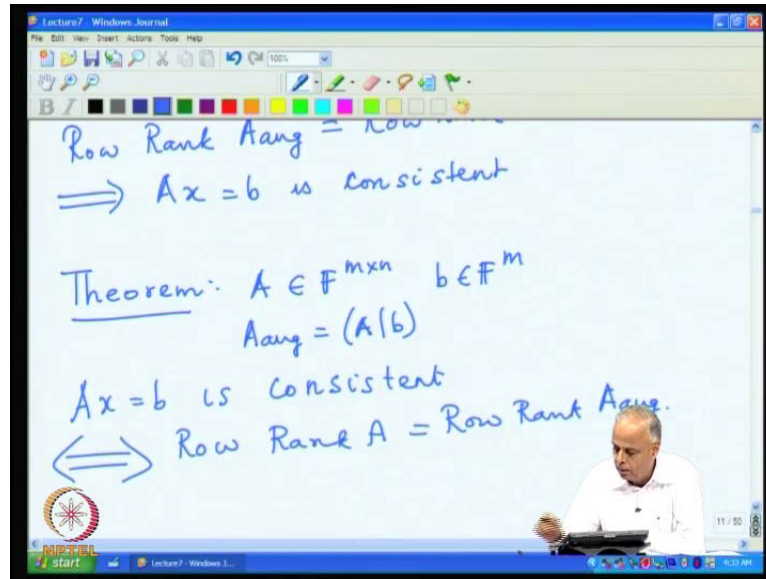 Lecture7 - Windows Journal
File Edit View Insert Actions Tools Help
100%
B I
Row Rank Aaug = Row
⟹ Ax = b is consistent
Theorem: A ∈ F^{m×n} b ∈ F^m
Aaug = (A|b)
Ax = b is consistent
⟺ Row Rank A = Row Rank Aaug.
11 / 50
NPTEL
start Lecture7 - Windows J... 9:33 AM